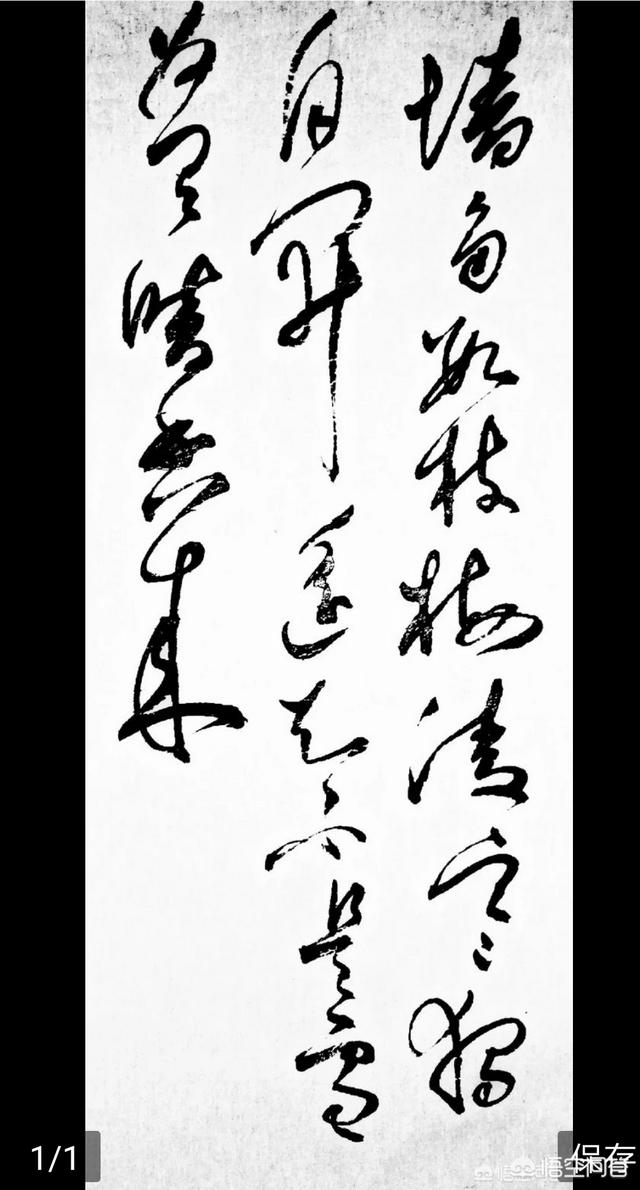 墙角数枝梅凌寒独
自开遥知不是雪
为有暗香来
1/1
保存
悟空问答